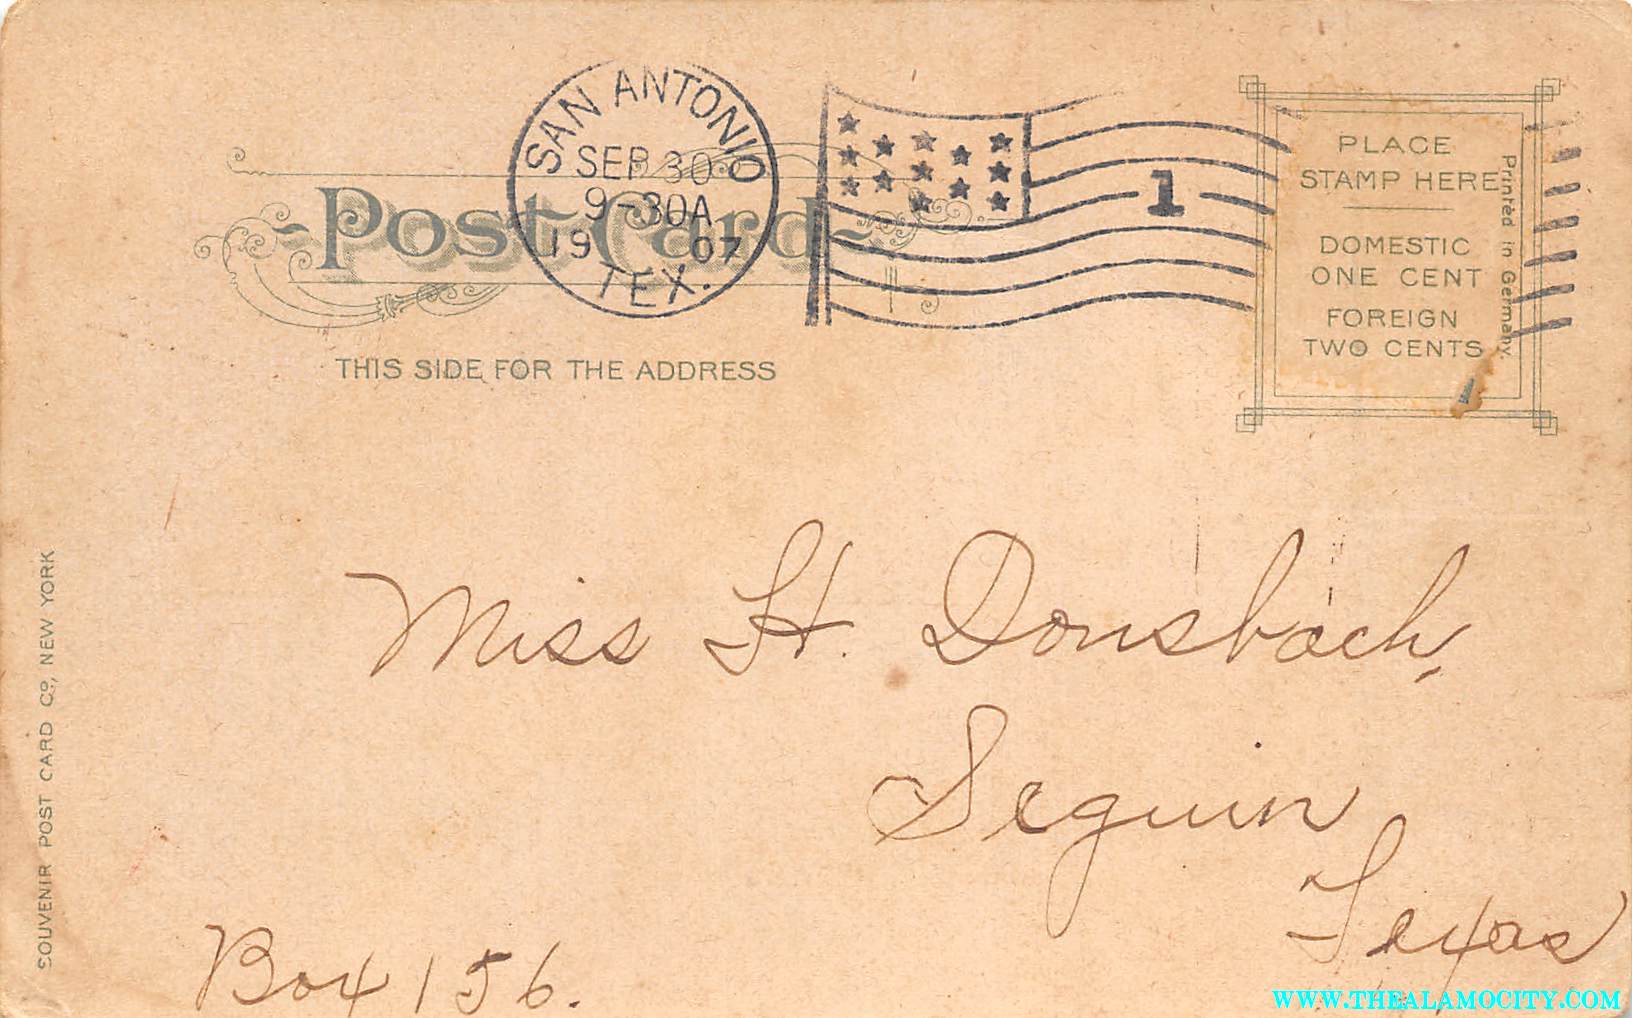 SAN ANTONIO
SEP 30
9-30A
1907
TEX.
1
Post Card
THIS SIDE FOR THE ADDRESS
PLACE
STAMP HERE
DOMESTIC
ONE CENT
FOREIGN
TWO CENTS
Printed in Germany.
SOUVENIR POST CARD CO., NEW YORK
Miss H. Donsbach,
Seguin
Texas
Box 156.
WWW.THEALAMOCITY.COM